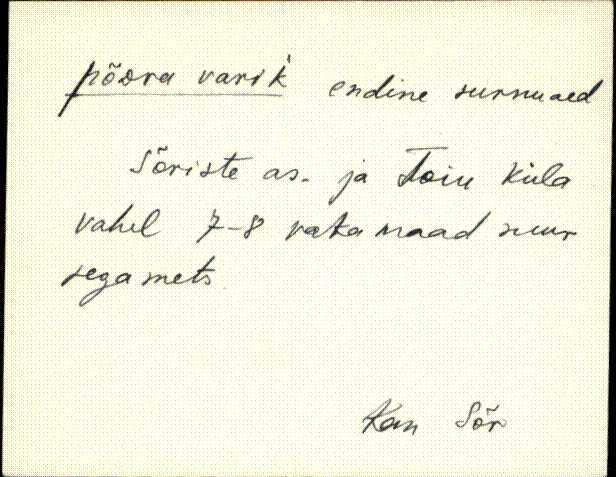 põdra varik endine surnuaed
Sõriste as. ja Toiu küla
vahel 7-8 vaka maad suur
segamets
Kan Sõr